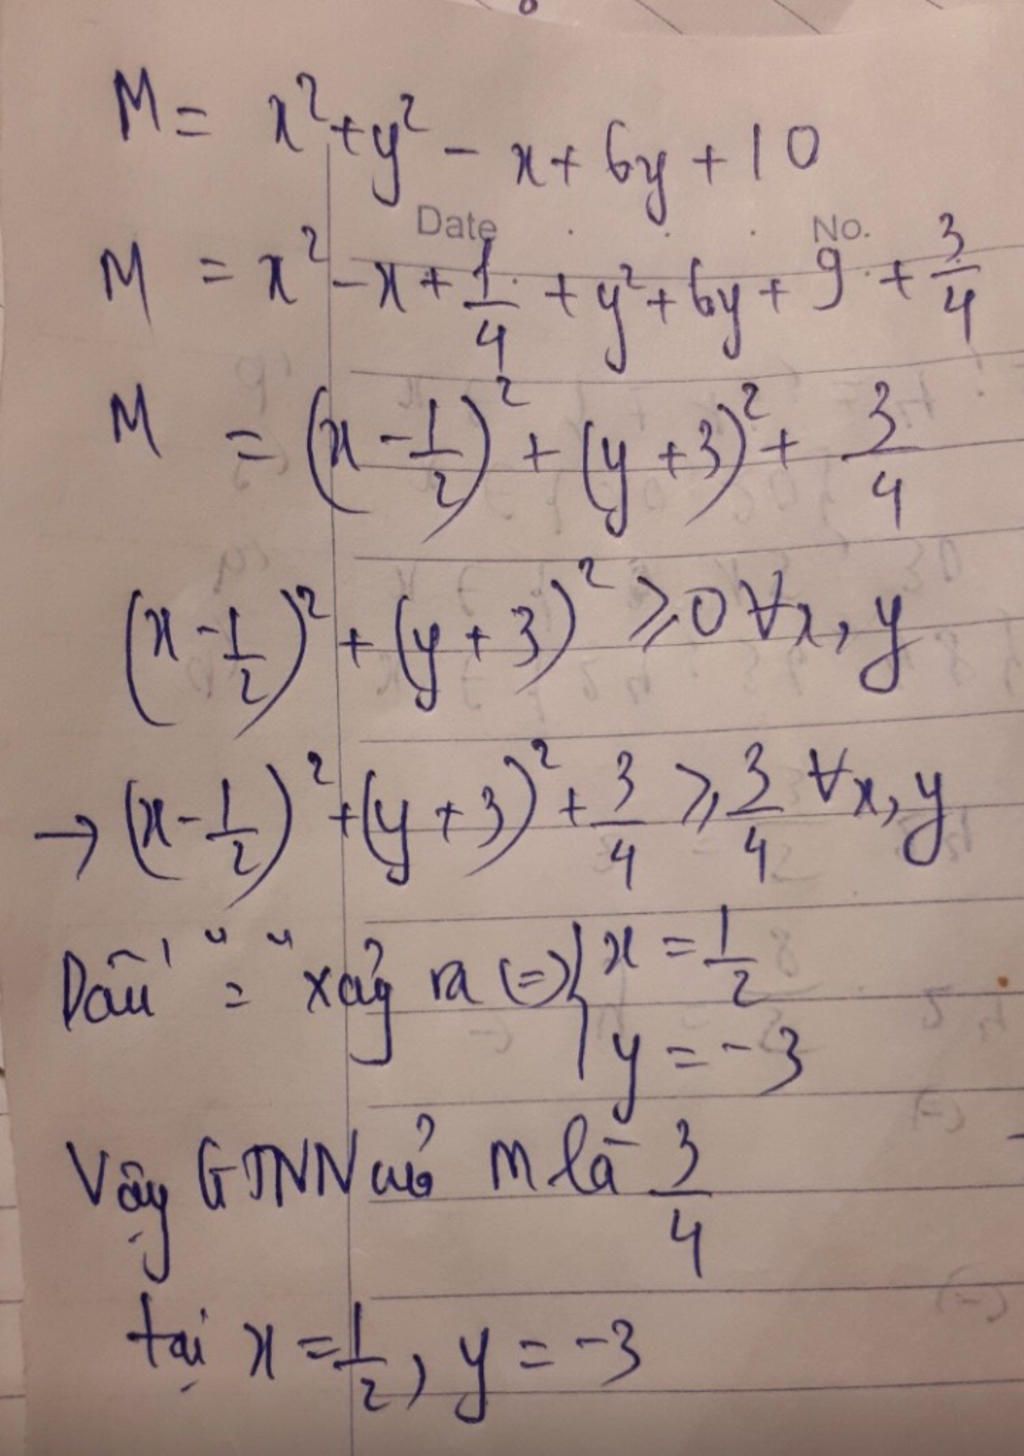 M = x² + y² - x + 6y + 10
Date No.
M = x² - x + 1/4 + y² + 6y + 9 + 3/4
M = (x - 1/2)² + (y + 3)² + 3/4
(x - 1/2)² + (y + 3)² ⩾ 0 ∀x, y
→ (x - 1/2)² + (y + 3)² + 3/4 ⩾ 3/4 ∀x, y
Dấu "=" xảy ra (=) { x = 1/2
y = -3
Vậy GTNN của M là 3/4
tại x = 1/2, y = -3